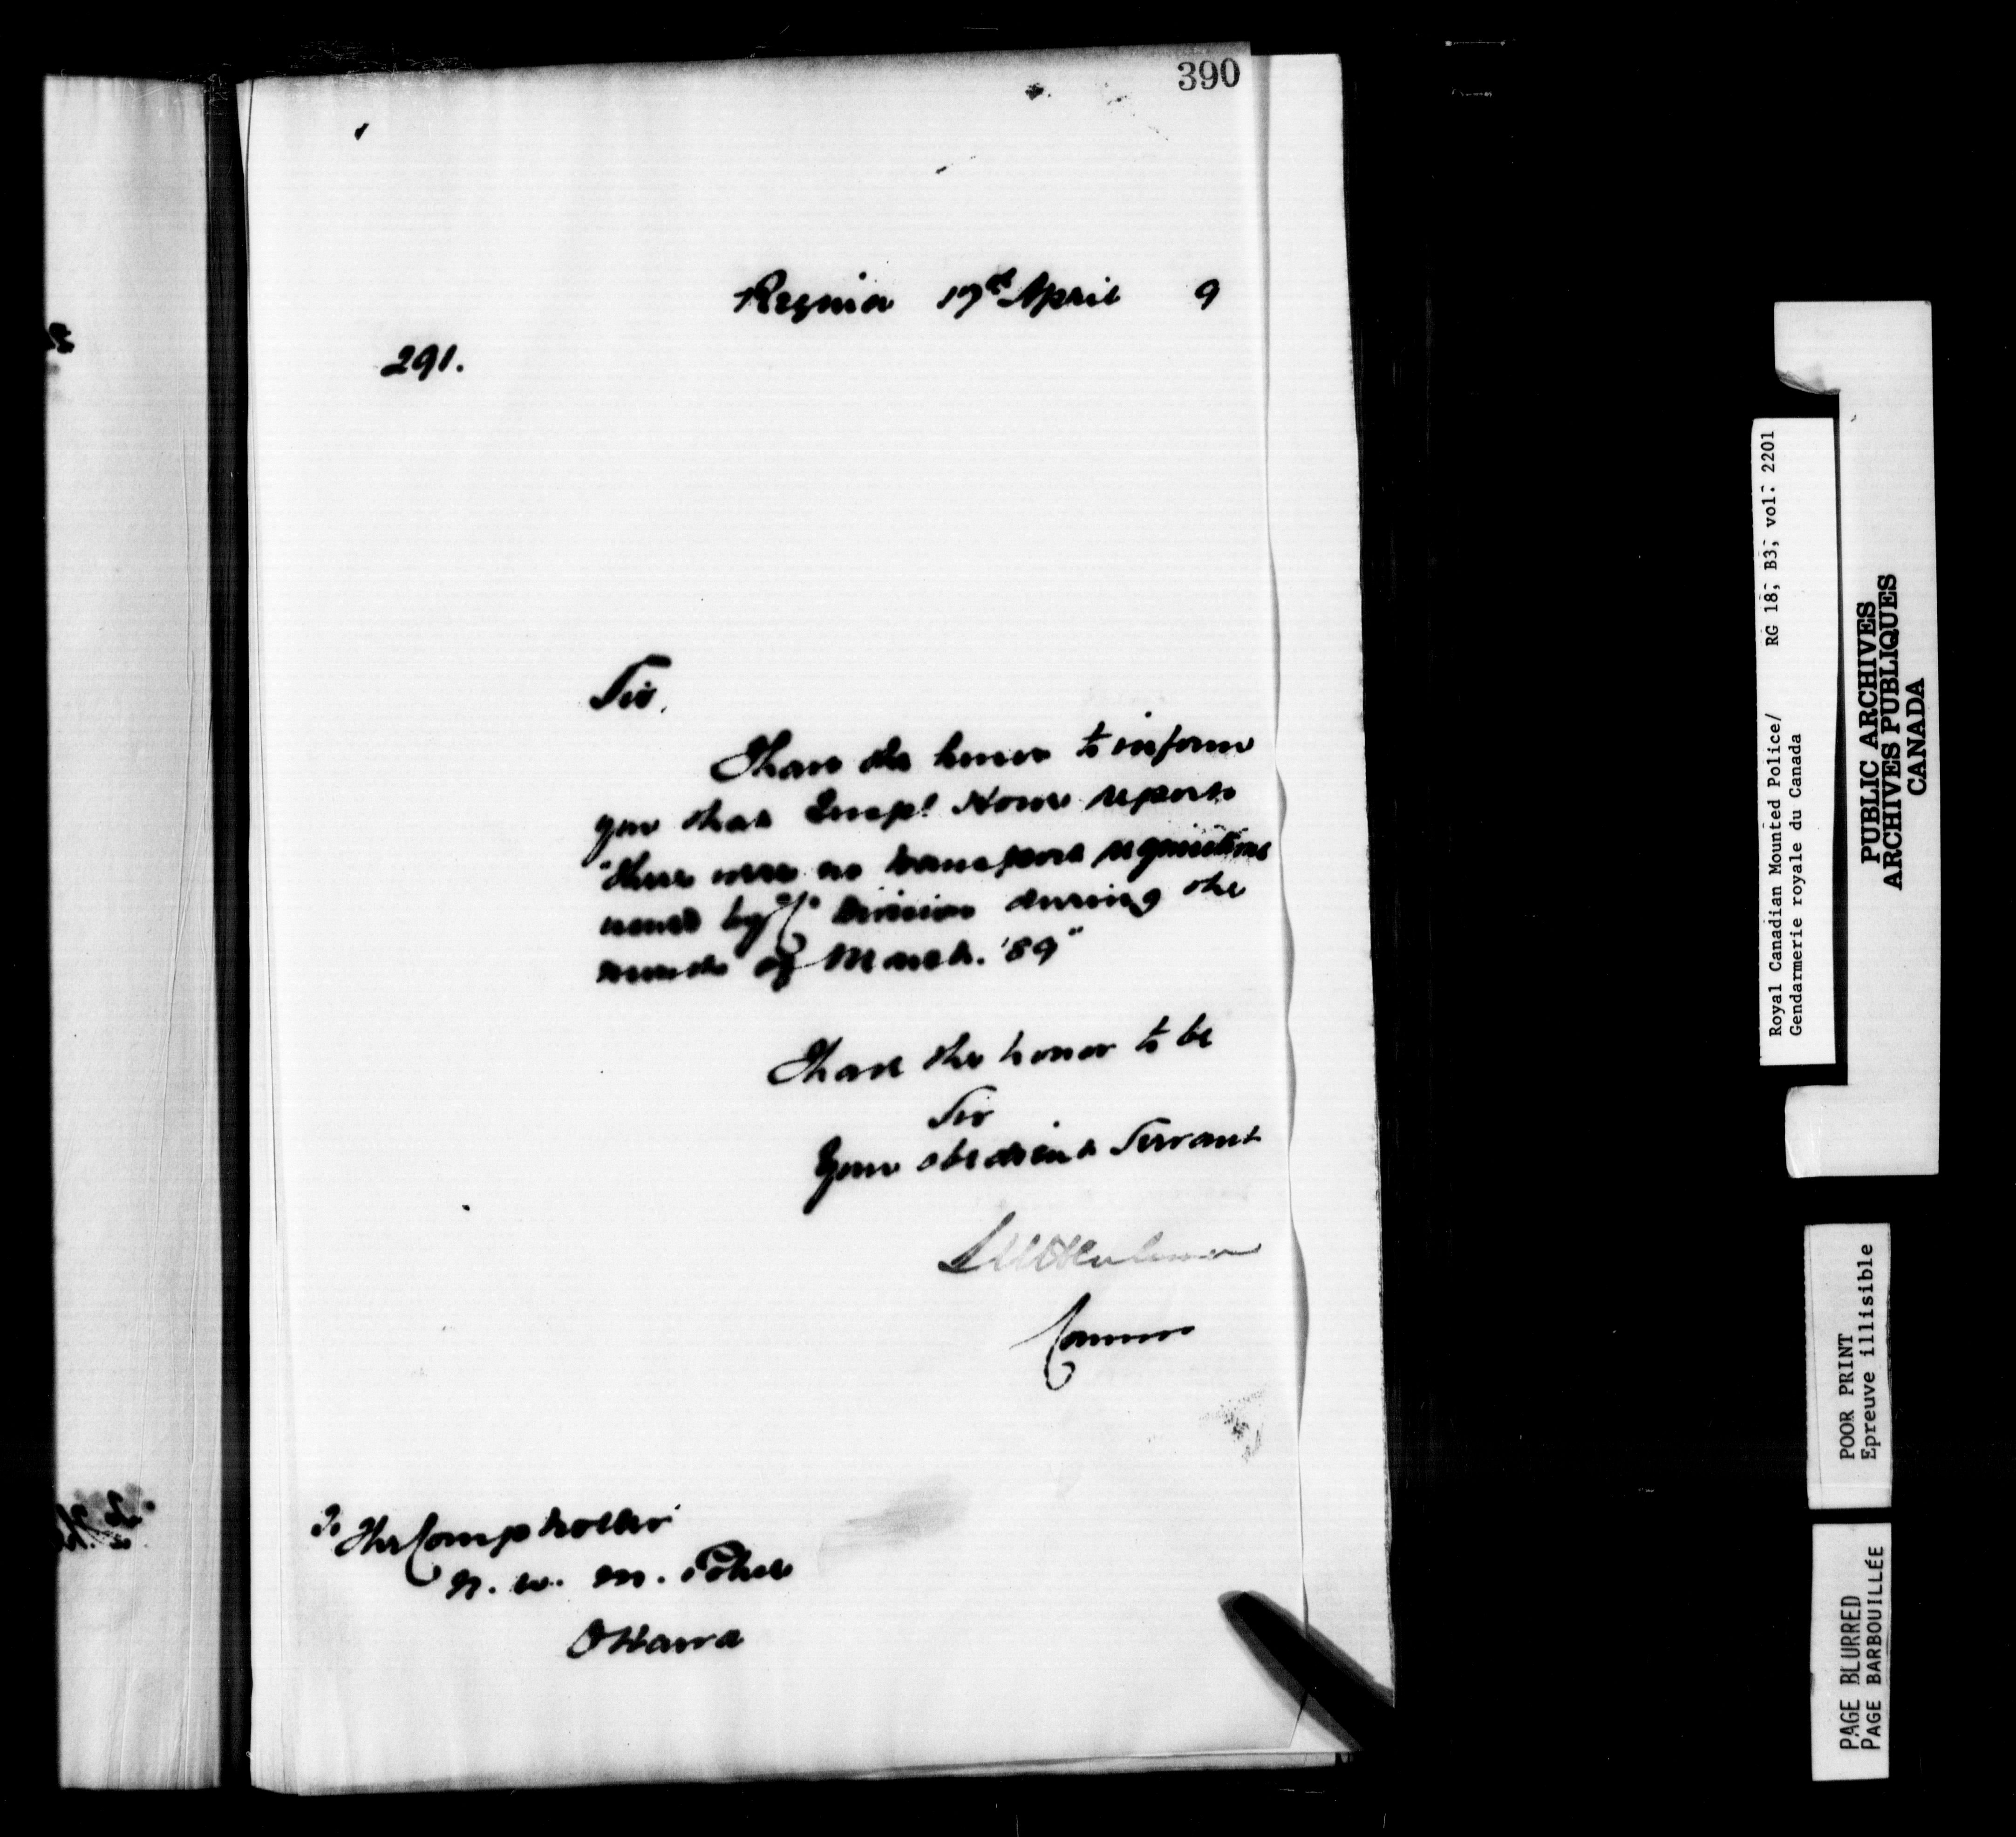 390
Regina 17th April 9
291.
Sir,
I have the honor to inform
you that Insp! Howe reports
"there were no transport requisitions
issued by "C" Division during the
month of March. '89"
I have the honor to be
Sir
Your obedient Servant
Commr
To The Comptroller
N. W. M. Police
Ottawa
Royal Canadian Mounted Police/ RG 18, B3, vol. 2201
Gendarmerie royale du Canada
PUBLIC ARCHIVES
ARCHIVES PUBLIQUES
CANADA
POOR PRINT
Epreuve illisible
PAGE BLURRED
PAGE BARBOUILLÉE